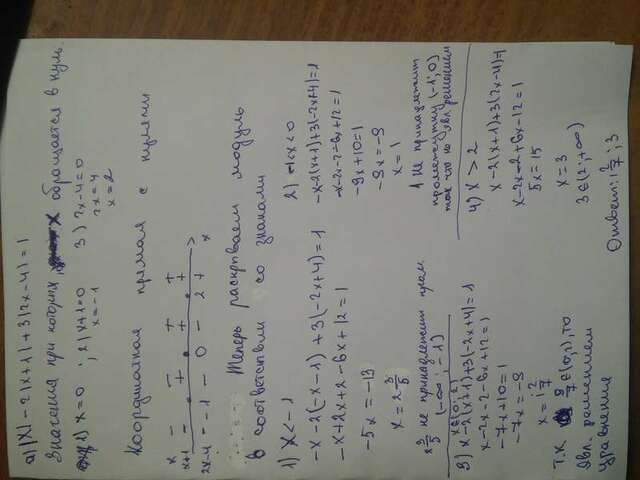 а) |x| - 2|x+1| + 3|2x-4| = 1
Значения при которых x обращается в нуль.
1) x = 0 ; 2) x+1=0 3) 2x-4=0
x = -1 2x = 4
x = 2
Координатная прямая с нулями
x - - + +
x+1 - + + +
2x-4 - -1 - 0 - 2 + x
Теперь раскрываем модуль
в соответствии со знаками
1) x < -1
-x-2(-x-1)+3(-2x+4)=1
-x+2x+2-6x+12=1
-5x = -13
x = 2 3/5
2 3/5 не принадлежит пром.
(-∞; -1)
2) -1<x<0
-x-2(x+1)+3(-2x+4)=1
-x-2x-2-6x+12=1
-9x+10=1
-9x=-9
x=1
1 не принадлежит
промежутку (-1; 0)
так что не явл. решением
3) x∈(0; 2)
x-2(x+1)+3(-2x+4)=1
x-2x-2-6x+12=1
-7x+10=1
-7x=-9
x = 1 2/7
т.к. 9/7 ∈(0; 2), то
явл. решением
уравнения
4) x > 2
x-2(x+1)+3(2x-4)=1
x-2x-2+6x-12=1
5x=15
x=3
3∈(2; +∞)
Ответ: 1 2/7 ; 3